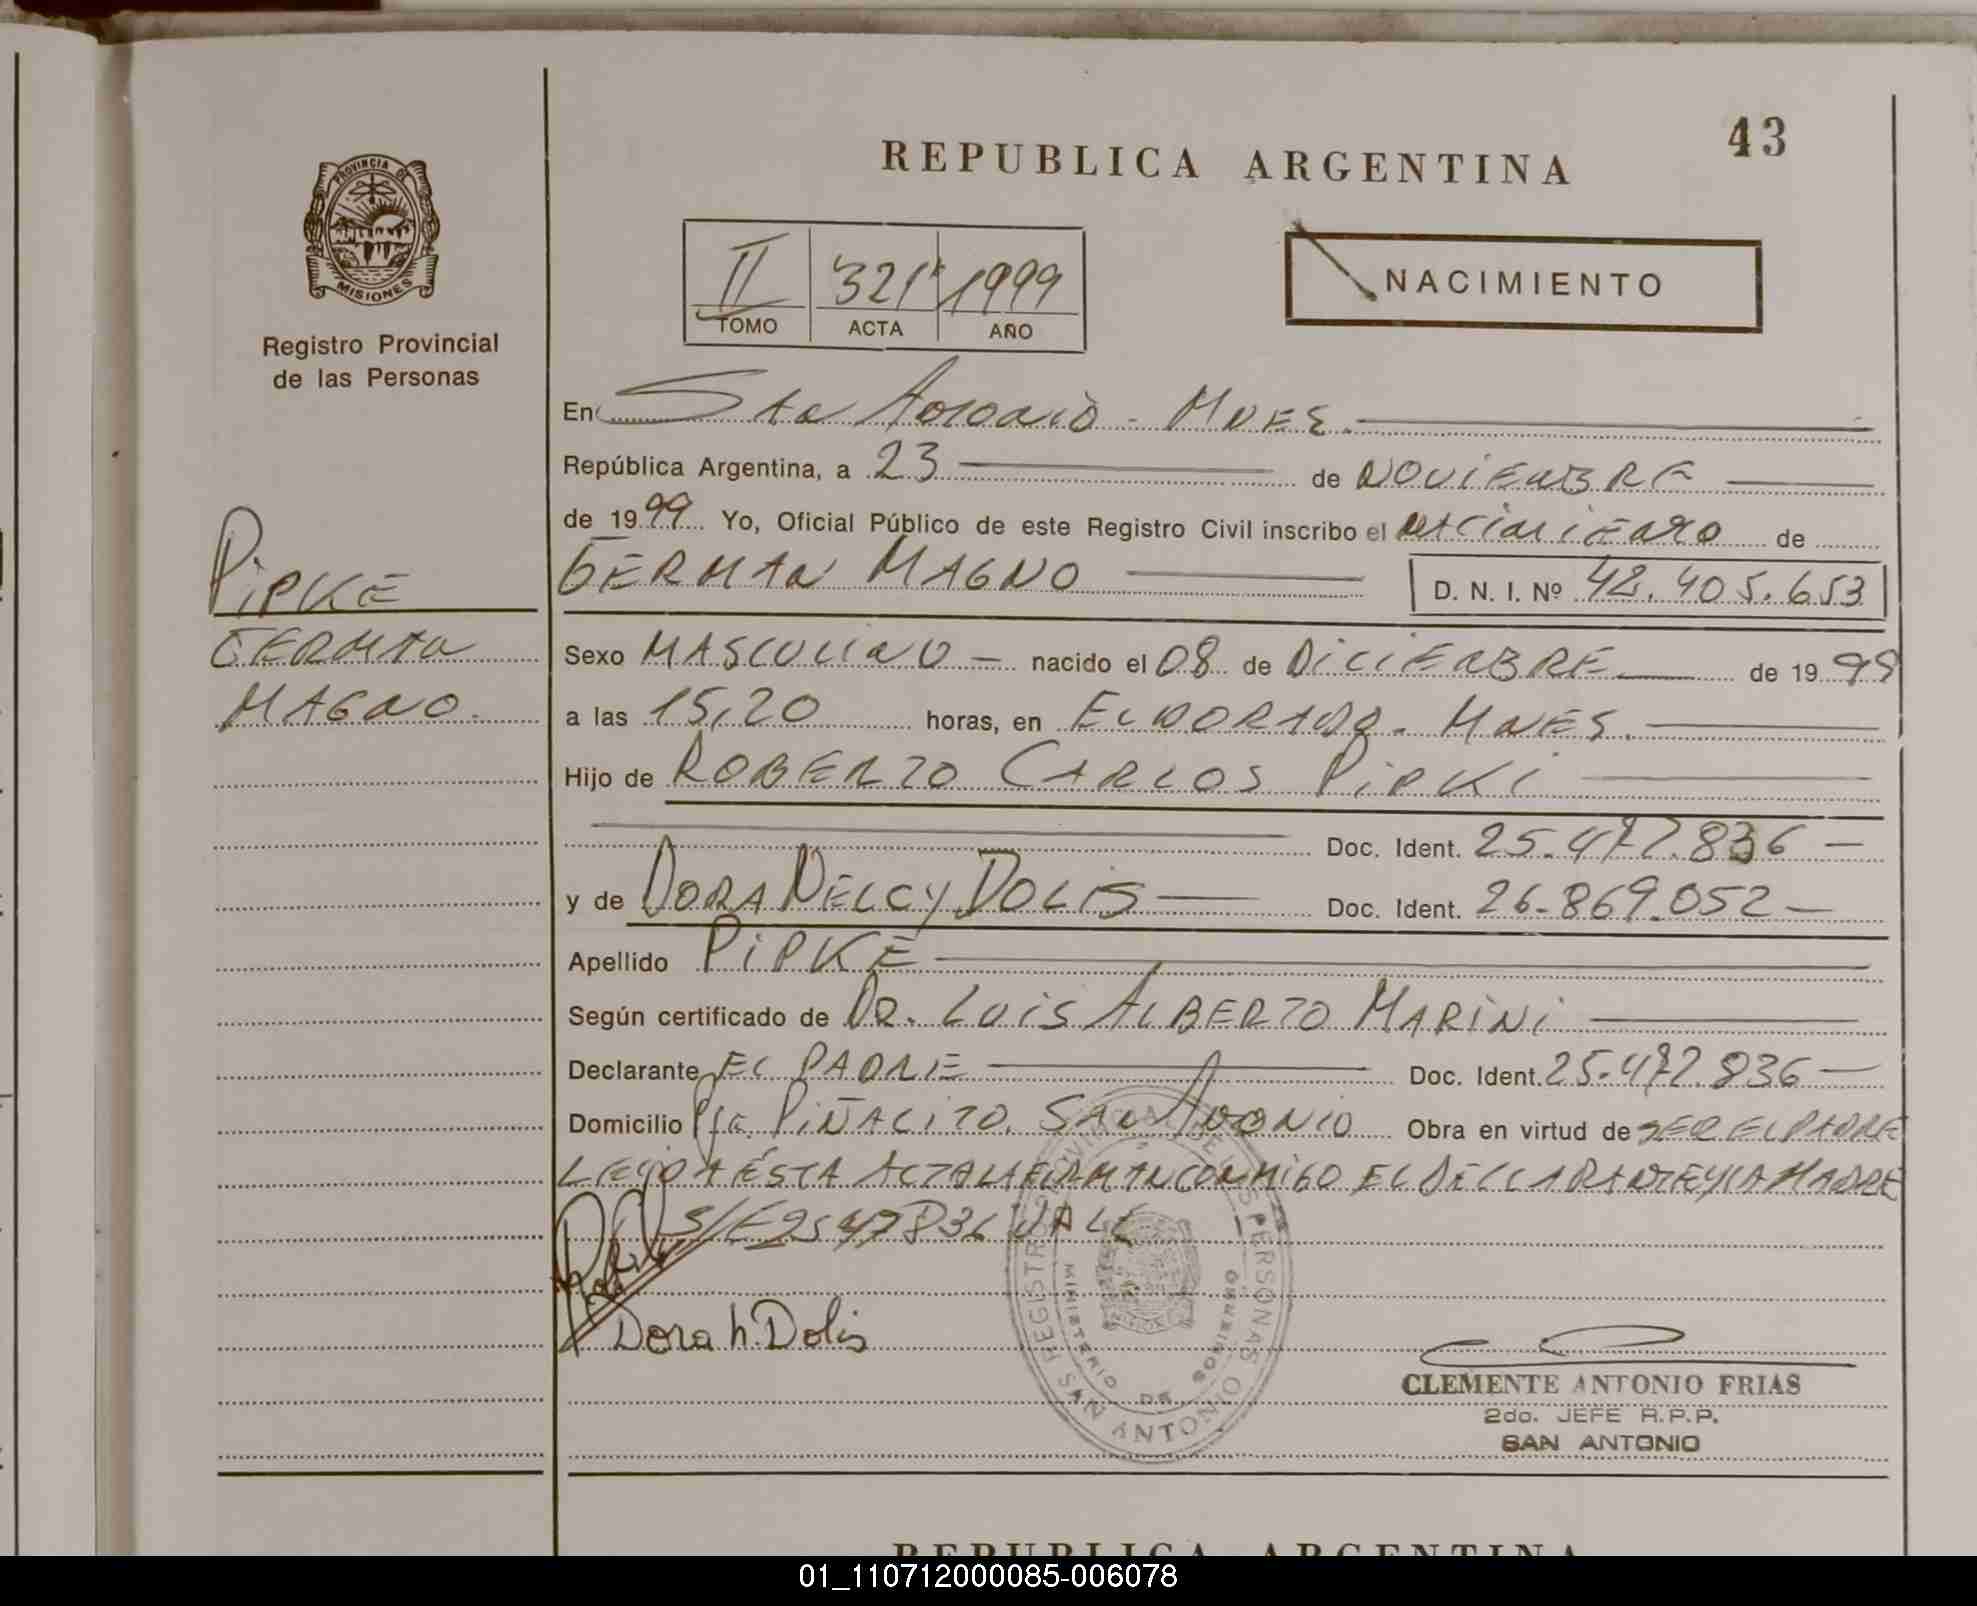 43
REPUBLICA ARGENTINA
PROVINCIA DE
MISIONES
Registro Provincial
de las Personas
II 321 1999
TOMO ACTA AÑO
NACIMIENTO
En San Antonio - Mnes.
República Argentina, a 23 de NOVIEMBRE
de 1999 Yo, Oficial Público de este Registro Civil inscribo el nacimiento de
GERMAN MAGNO D. N. I. Nº 42.405.653
PIPKE
GERMAN
MAGNO.
Sexo MASCULINO - nacido el 08 de DICIEMBRE de 19
a las 15,20 horas, en ELDORADO - MNES.
Hijo de ROBERTO CARLOS PIPKE
Doc. Ident. 25.472.836 -
y de DORA NELCY DOLIS Doc. Ident. 26.869.052 -
Apellido PIPKE
Según certificado de DR. LUIS ALBERTO MARINI
Declarante EL PADRE Doc. Ident. 25.472.836 -
Domicilio PIÑALITO. SAN ANTONIO Obra en virtud de SER EL PADRE
LEIDA ÉSTA ACTA LA FIRMAN CONMIGO EL DECLARANTE Y LA MADRE
S/E VALE
Dora N. Dolis
REGISTRO PROVINCIAL DE LAS PERSONAS
MINISTERIO DE GOBIERNO
SAN ANTONIO
CLEMENTE ANTONIO FRIAS
2do. JEFE R.P.P.
SAN ANTONIO
REPUBLICA ARGENTINA
01_110712000085-006078